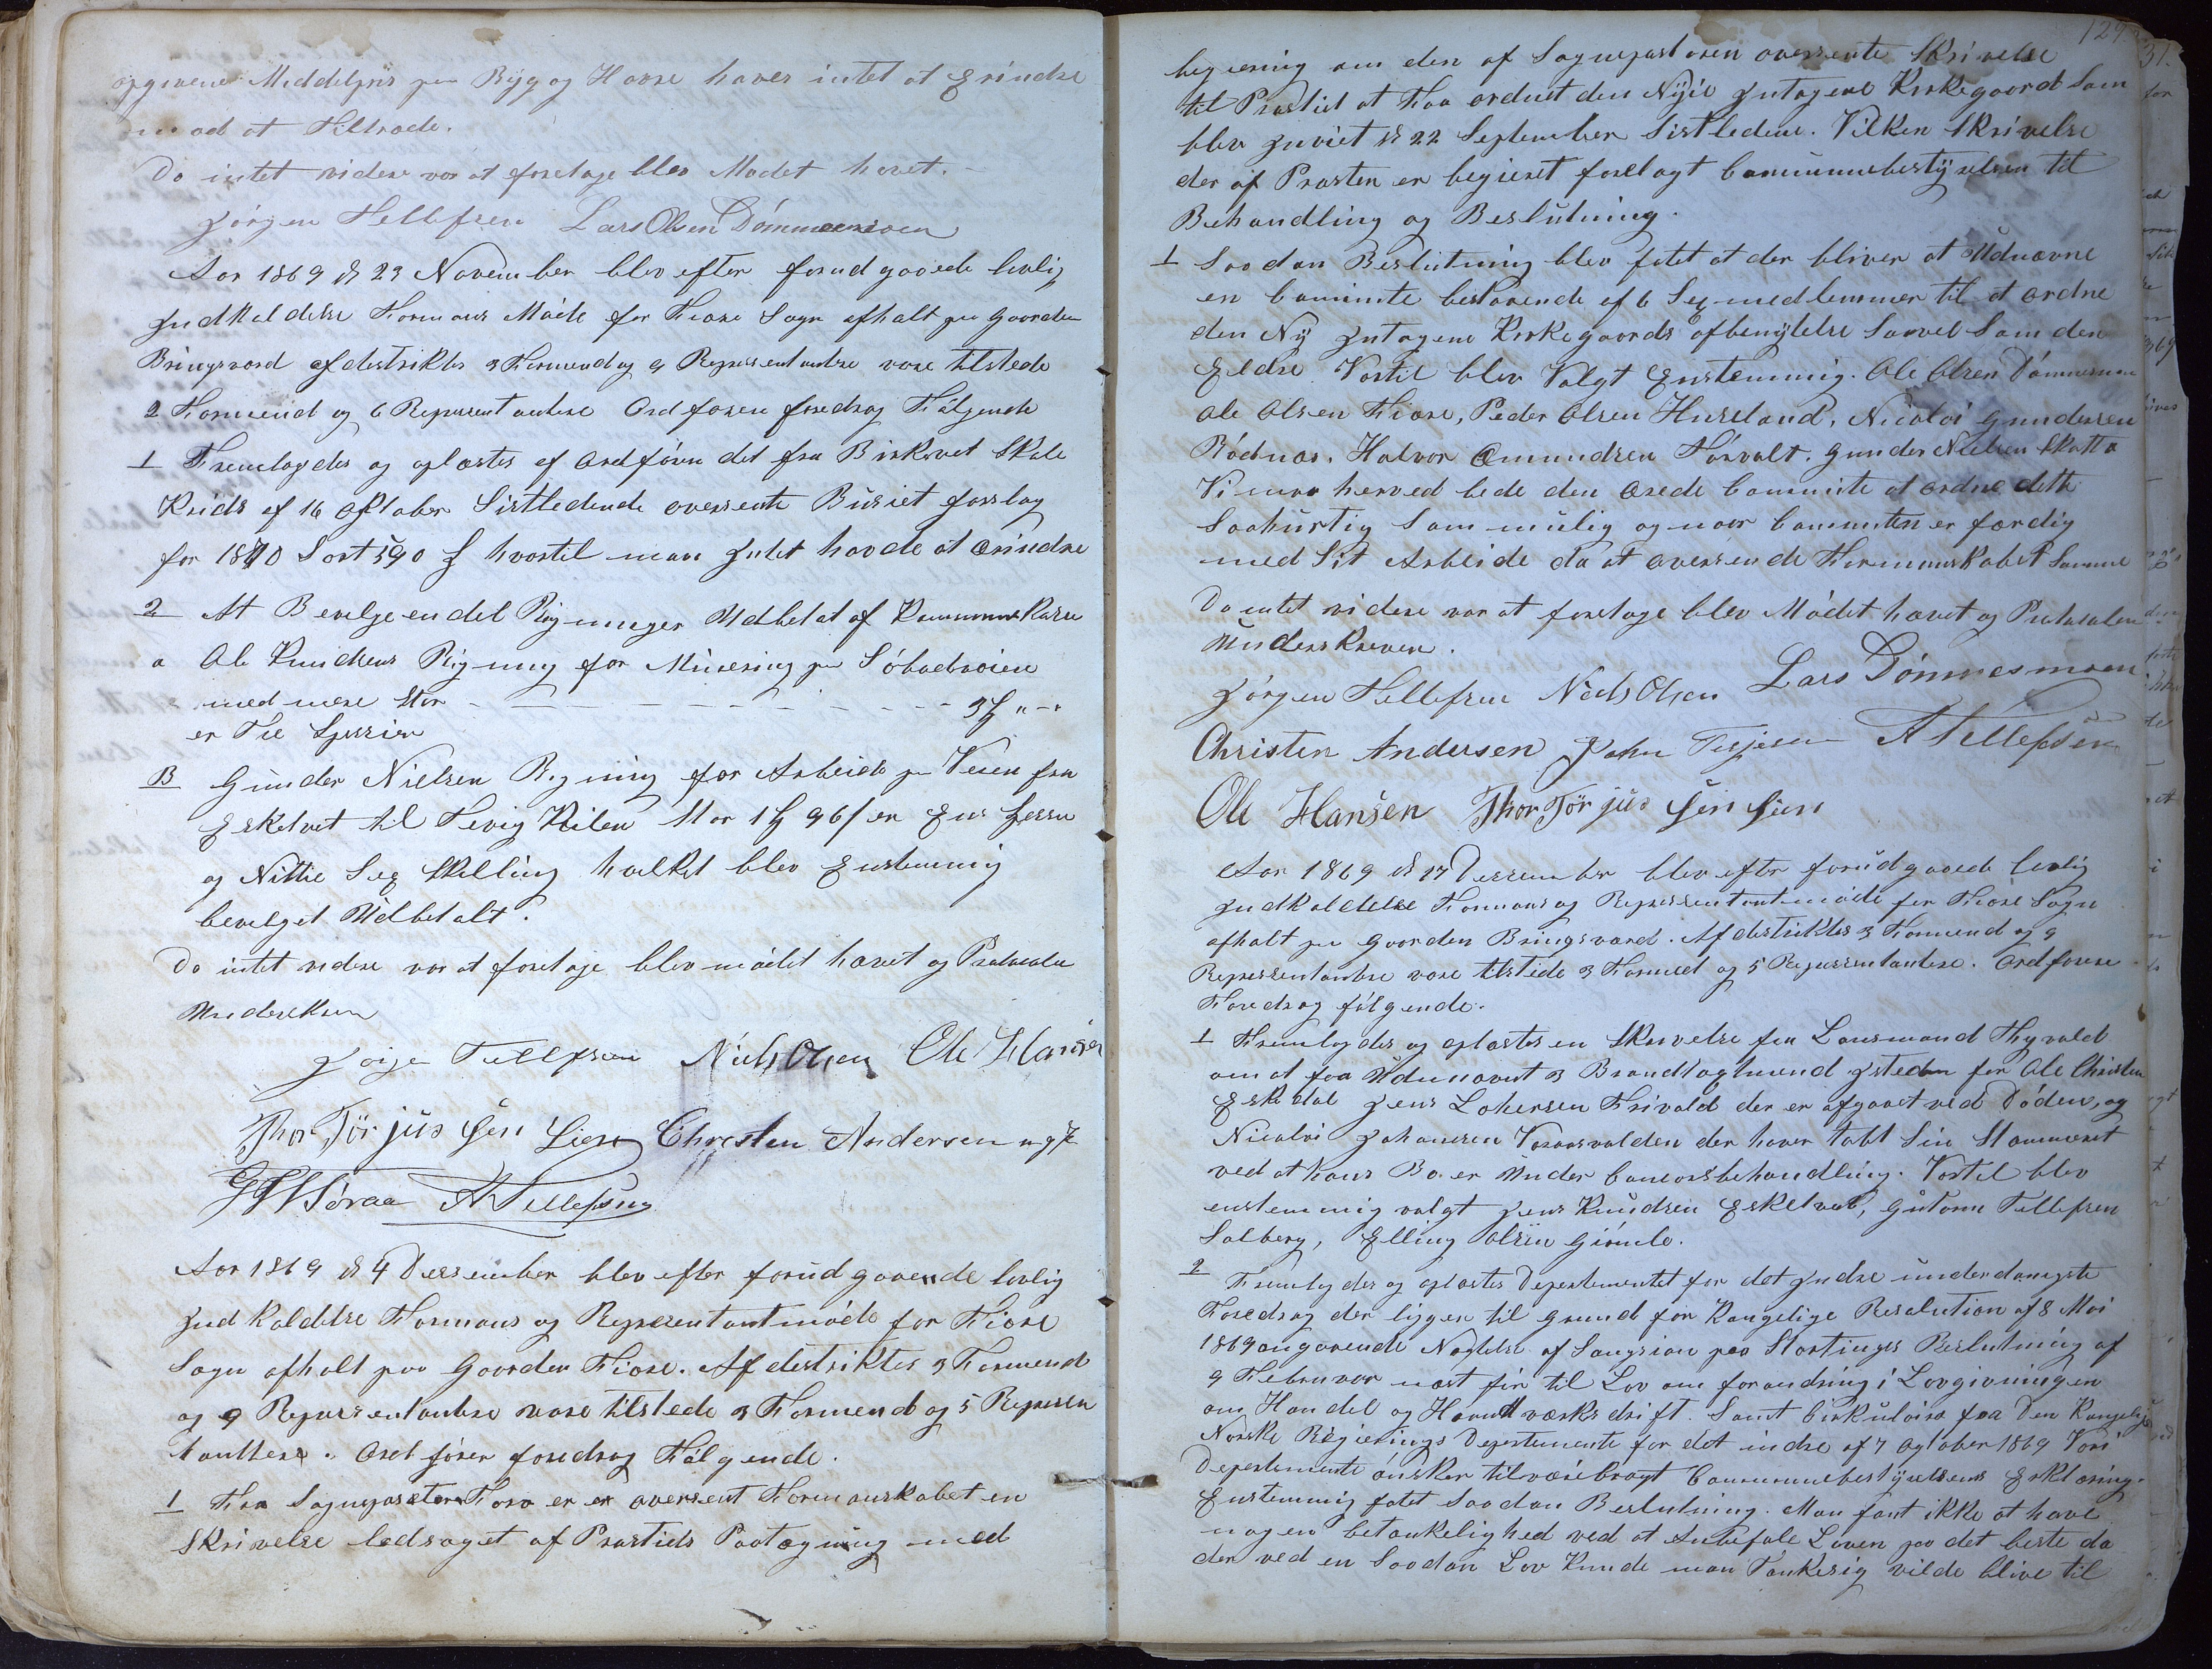 opgivene Middelpris paa Byg og Havre haves intet at Erindre
mod at Tiltræde.
Da intet videre var at foretage blev Mødet hævet.
Jørgen Tellefsen Lars Olsen Dømmesmoen
Aar 1869 d 23 November blev efter forud gaaede lovlig
Indkaldelse Formans Møde for Fiære Sogn afholt paa Gaarden
Bringsværd af destriktes 3 Formend og 9 Representantere vare tilstede
2 Formend og 6 Representantere Ordføren foredrog Følgende
1 Fremlagdes og oplæstes af Ordføren det fra Birkevet Skole
Krids af 16 Oktober Sistledende oversente Busiet forslag
for 1870 Stort 590 hvortil man Intet havde at Erindre
2 At Bevelge en del Rigninger Udbetalt af Kommunekassen
a Ole Knudsens Rigning for Minering paa
med mere Stor - - - - - - - - - 3
er Tre Spessier
B Gunder Nielsen Rigning for Arbeide paa Veien fra
Eskelvet til Tevig Kilen Stor 1 96 er En Spesse
og Nittie Seg Skilling hvilket blev Enstemmig
bevelget Udbetalt.
Da intet videre var at foretage blev mødet hævet og Protocolen
Underskreven
Jørgen Tellefsen Niels Olsen Ole Hansen
Thor Tørjus Sen Lien Christen Andersen
A Tellefsen
Aar 1869 d 4 Dessember blev efter forud gaaende lovlig
Indkaldelse Formans og Representantmøde for Fiære
Sogn afholt paa Gaarden Fiære. Af destriktes 3 Formend
og 9 Representantere vare tilstede 3 Formend og 5 Represen
tantere. Ordføren foredrog Følgende.
1 Fra Sognepræsten er oversent Formanskabet en
Skrivelse ledsaget af Prastids Paategning med
129
begiering om den af Sognepastoren oversente Skrivelse
til Prastid at Faa ordnet den Nyie Intagene Kirkegaard Som
blev Inviet d 22 September Sistledene. Vilken Skrivelse
der af Prasten er begieret forelagt Communebestyrelsen til
Behandling og Beslutning.
1 Saadan Beslutning blev fatet at der bliver at Udnævne
en Committe bestaaende af 6 Seg medlemmer til at ordne
den Ny Intagene Kirkegaards afbenyttelse Saavel Som den
Eldre Vortil blev Valgt Enstemmig. Ole Olsen Dømmesmoen
Ole Olsen Fiære, Peder Olsen Hureland, Nicolai Gundersen
Rødnæs. Halvor Omundsen Torvolt. Gunder Nielsen Skatta
Vi maa herved bede den ærede Committe at ordne dette
Saahurtig Som mulig og naar Committen er færdig
med Sit Arbeide da at oversende Formanskabet Samme
Da intet videre var at foretage blev Mødet hævet og Protocolen
Underskreven.
Jørgen Tellefsen Niels Olsen Lars Dømmesmoen
Christen Andersen John Terjesen A Tellefsen
Ole Hansen Thor Tørjus Sen Lien
Aar 1869 d 17 Dessember blev efter forudgaaede lovlig
Indkaldelse Formans og Representantmøde for Fiære Sogn
afholt paa Gaarden Bringsværd. Af destriktes 3 Formend og 9
Representantere vare tilstede 3 Formend og 5 Representantere. Ordføren
Foredrog følgende.
1 Fremlagdes og oplæstes en Skrivelse fra Lensmand Thyvold
om at faa Udnævnt 3 Brandtagtmend Isteden for Ole Christen
Eskedal Jens Lohersen Frivold der er afgaaet ved Døden, og
Nicolai Johansen Vaaarsvolden der haver tabt Sin Stemmeret
ved at hans Bo er Under Concorsbehandling. Vortil blev
enstemmig valgt Jens Knudsen Eskelvet, Gutorm Tellefsen
Solberg, Elling Olsen Gimle.
2 Fremlagdes og oplæstes Departementet for det Indre underdanigste
Foredrag der ligger til Grund for Kongelige Resolution af 8 Mai
1869 angaaende Nægtelse af Sangsion paa Stortinges Beslutning af
9 Februar næst før til Lov om forandring i Lovgivningen
om Handel og Haandværksdrift. Samt Cirkulære fra Den Kongelige
Norske Regierings Departemente for det indre af 7 Oktober 1869 Vori
Departemente ønsker tilveiebragt Communebestyrelsens Erklæring.
Enstemmig fatet Saadan Beslutning. Man fant ikke at have
nogen betænkelighed ved at Anbefale Loven paa det beste da
der ved en Saadan Lov Kunde man Tænke sig vilde blive til